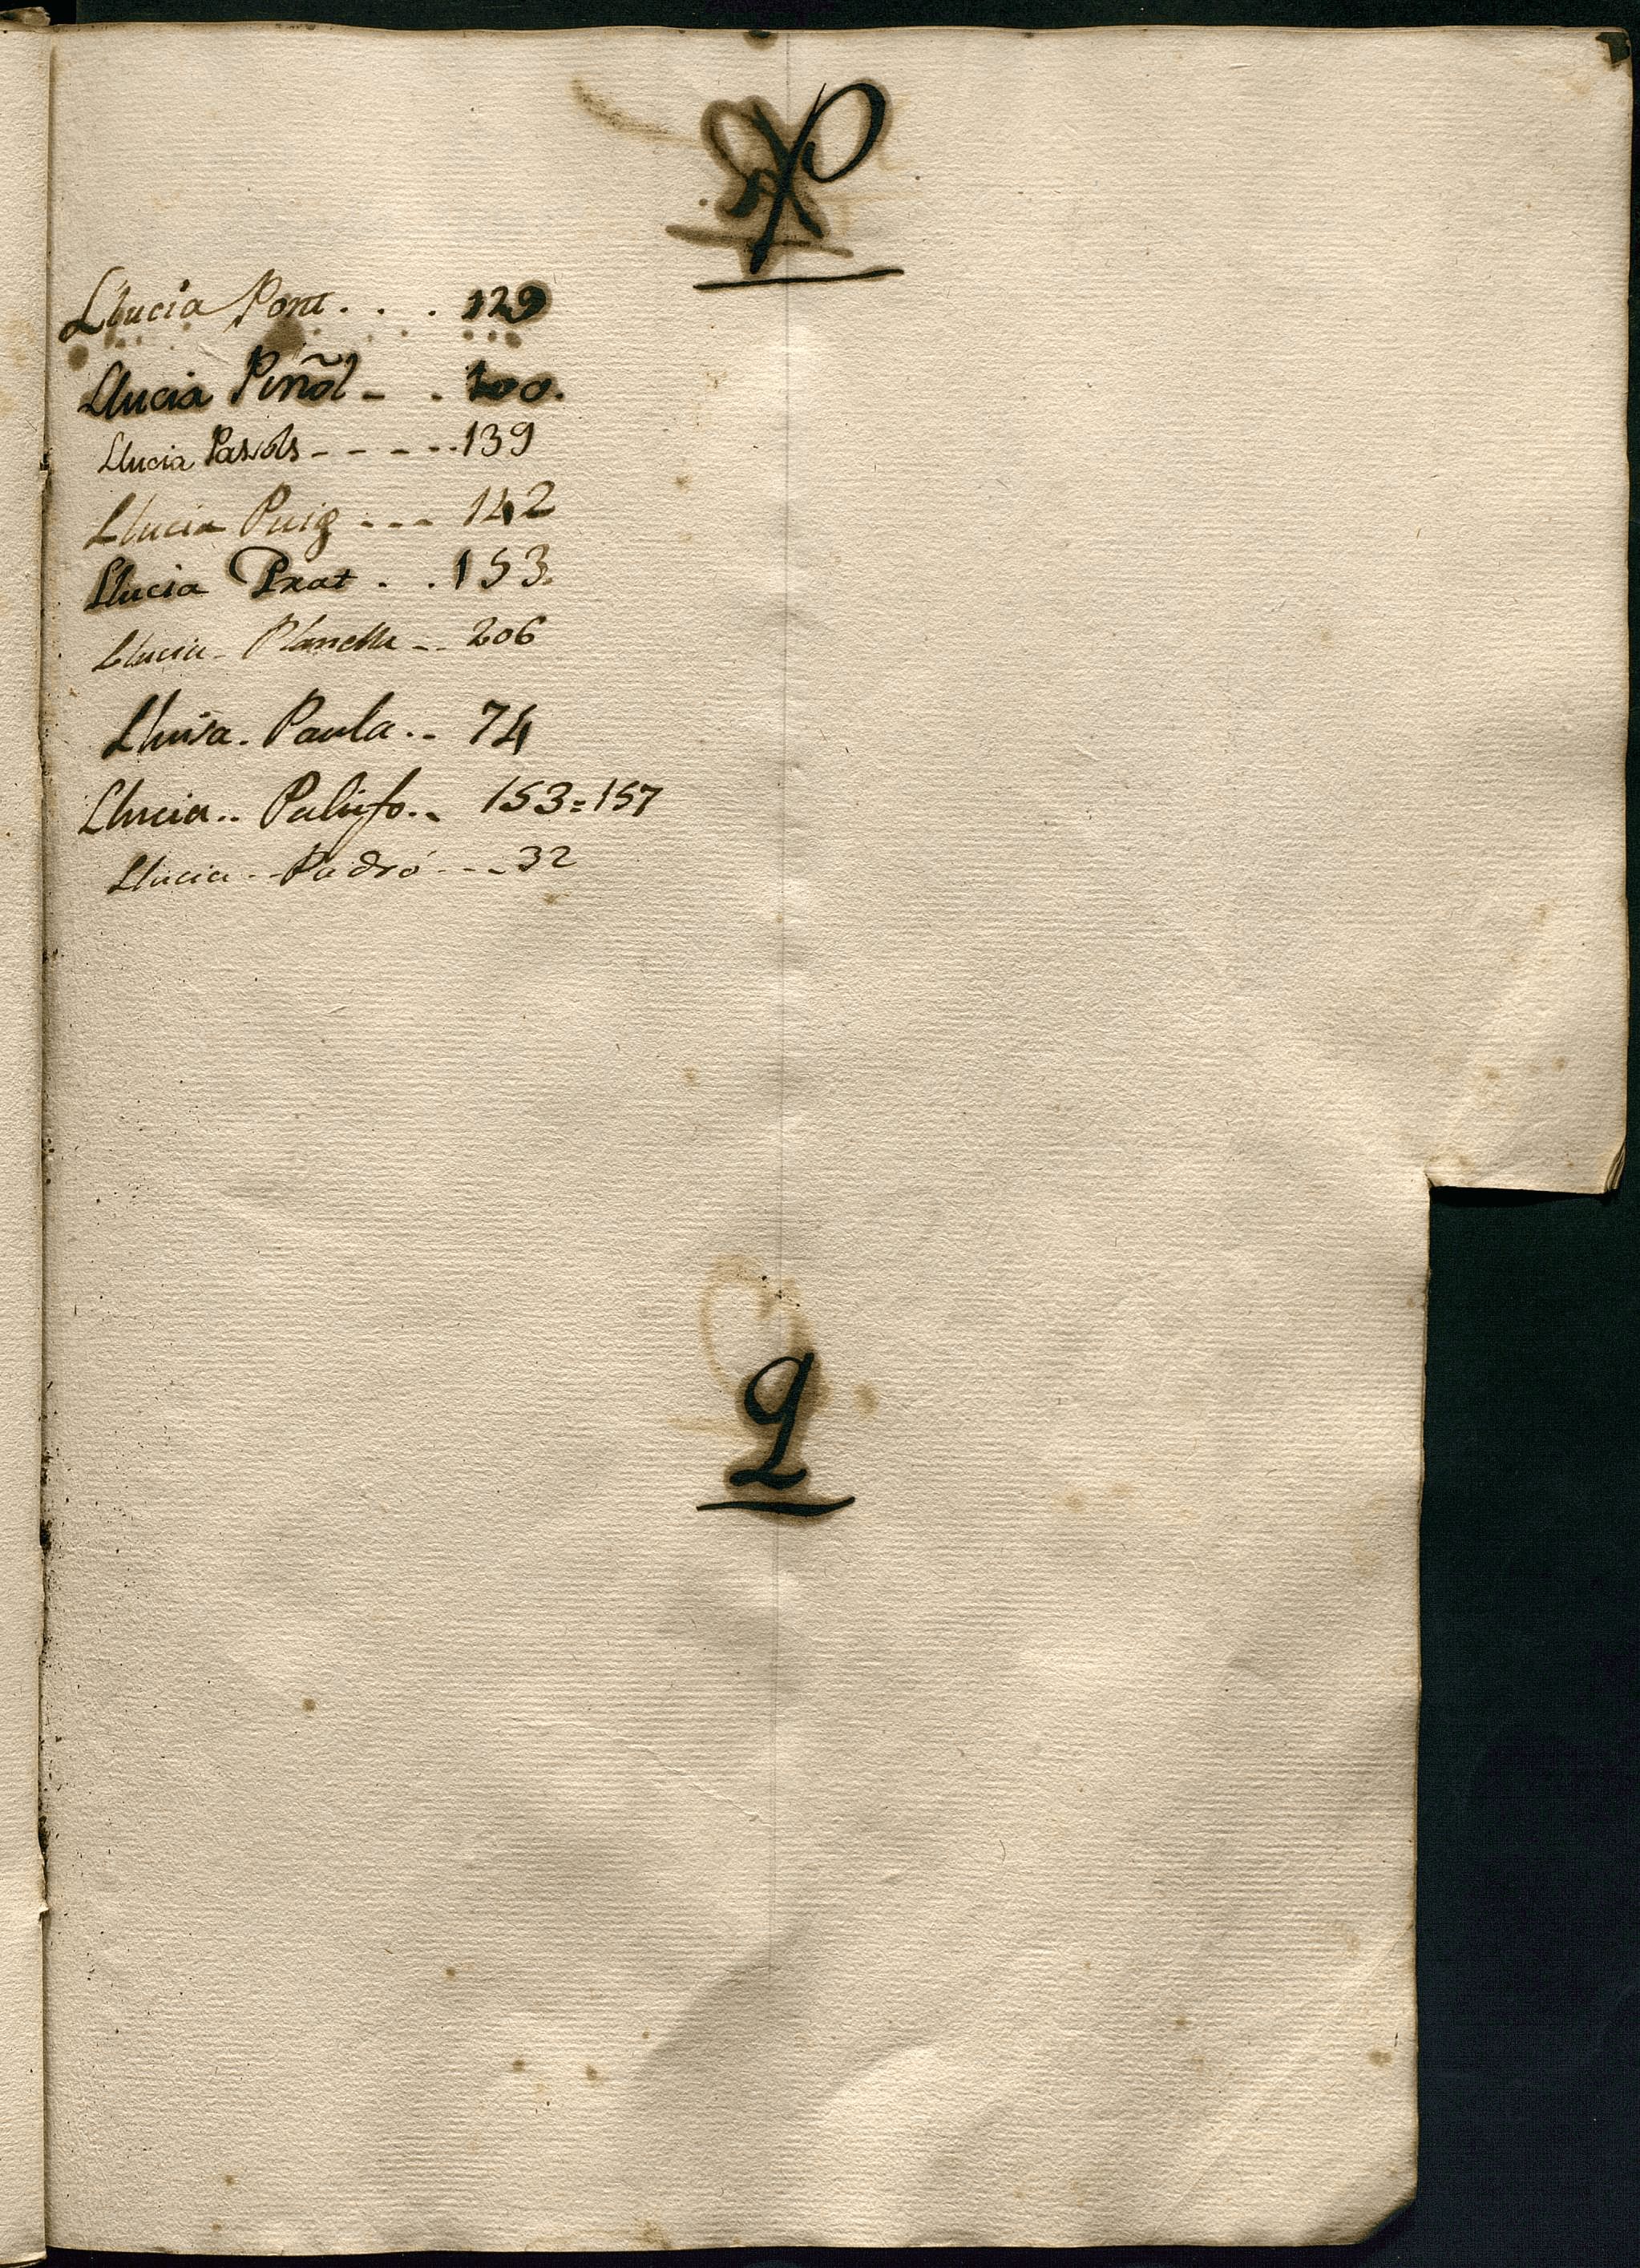 P
Llucia Pont. . . . 129
Llucia Piñol - . 100.
Llucia Passols - - - - - 139
Llucia Puig - - - 142
Llucia Prat . . 153.
Llucia - Planella - - 206
Lluisa. Paula. . - 74
Llucia. . 153=157
Llucia - - Padró - - - 32
Q